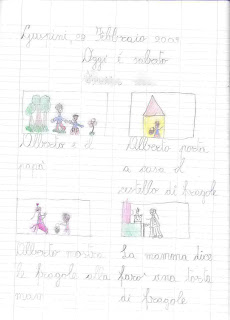 28 Febbraio 2009
Oggi è sabato
Alberto e il
papà
Alberto porta
a casa il
cestello di fragole
Alberto mostra
le fragole alla
mam
La mamma dice
farò una torta
di fragole